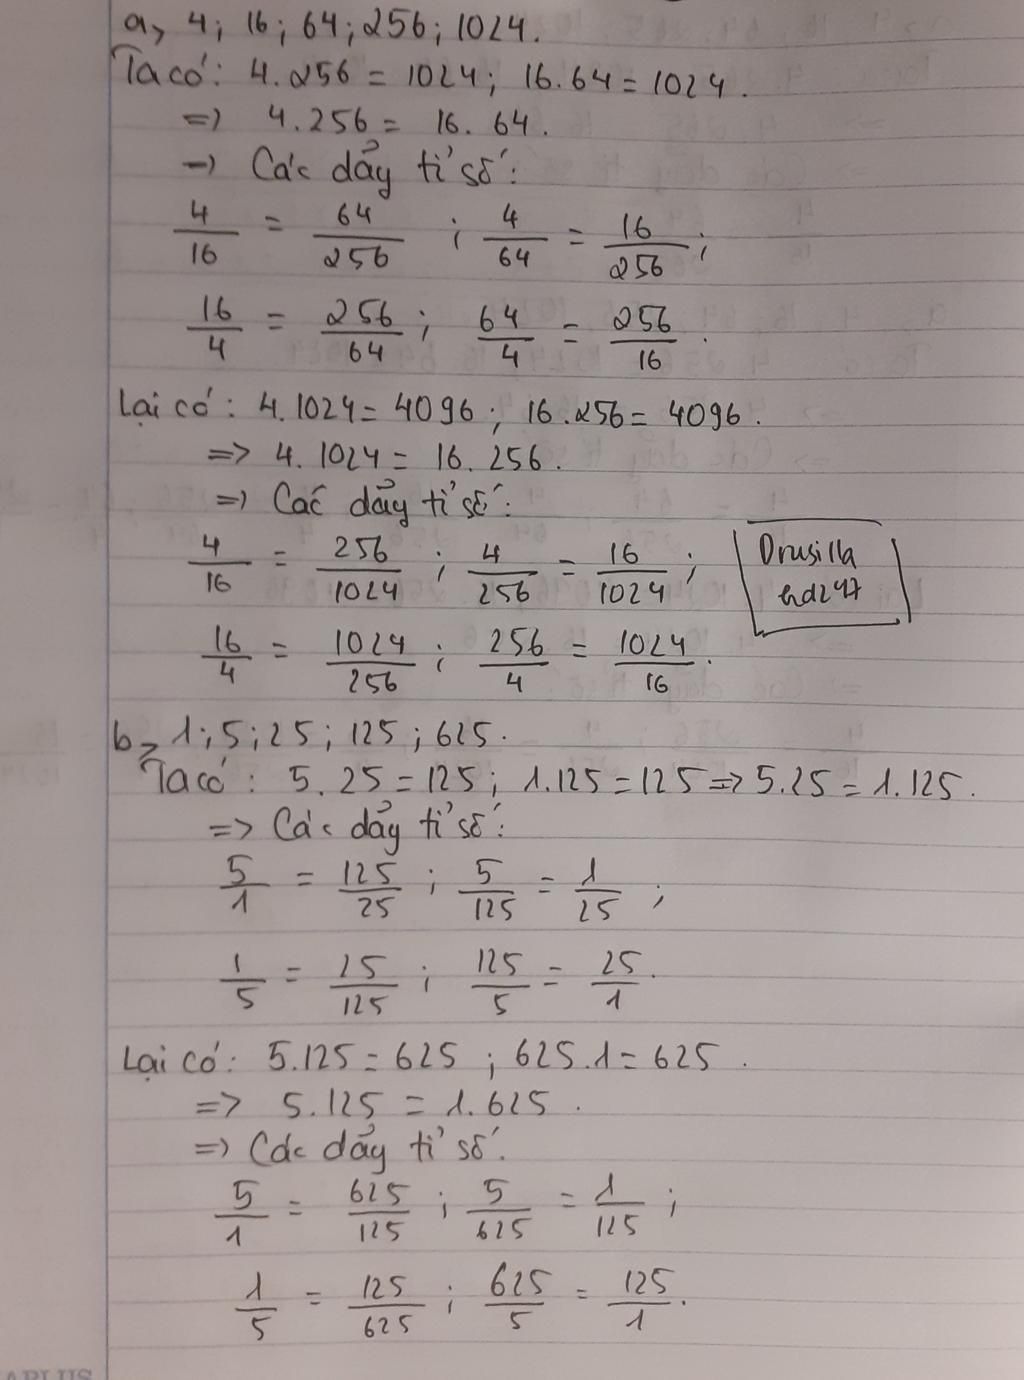 a, 4; 16; 64; 256; 1024.
Ta có: 4.256 = 1024; 16.64 = 1024.
=> 4.256 = 16.64.
=> Các dãy tỉ số:
4/16 = 64/256 ; 4/64 = 16/256 ;
16/4 = 256/64 ; 64/4 = 256/16 .
Lại có: 4.1024 = 4096; 16.256 = 4096.
=> 4.1024 = 16.256.
=> Các dãy tỉ số:
4/16 = 256/1024 ; 4/256 = 16/1024 ;
16/4 = 1024/256 ; 256/4 = 1024/16 .
Drusilla
b, 1; 5; 25; 125; 625.
Ta có: 5.25 = 125; 1.125 = 125 => 5.25 = 1.125.
=> Các dãy tỉ số:
5/1 = 125/25 ; 5/125 = 1/25 ;
1/5 = 25/125 ; 125/5 = 25/1 .
Lại có: 5.125 = 625 ; 625.1 = 625 .
=> 5.125 = 1.625 .
=> Các dãy tỉ số:
5/1 = 625/125 ; 5/625 = 1/125 ;
1/5 = 125/625 ; 625/5 = 125/1 .